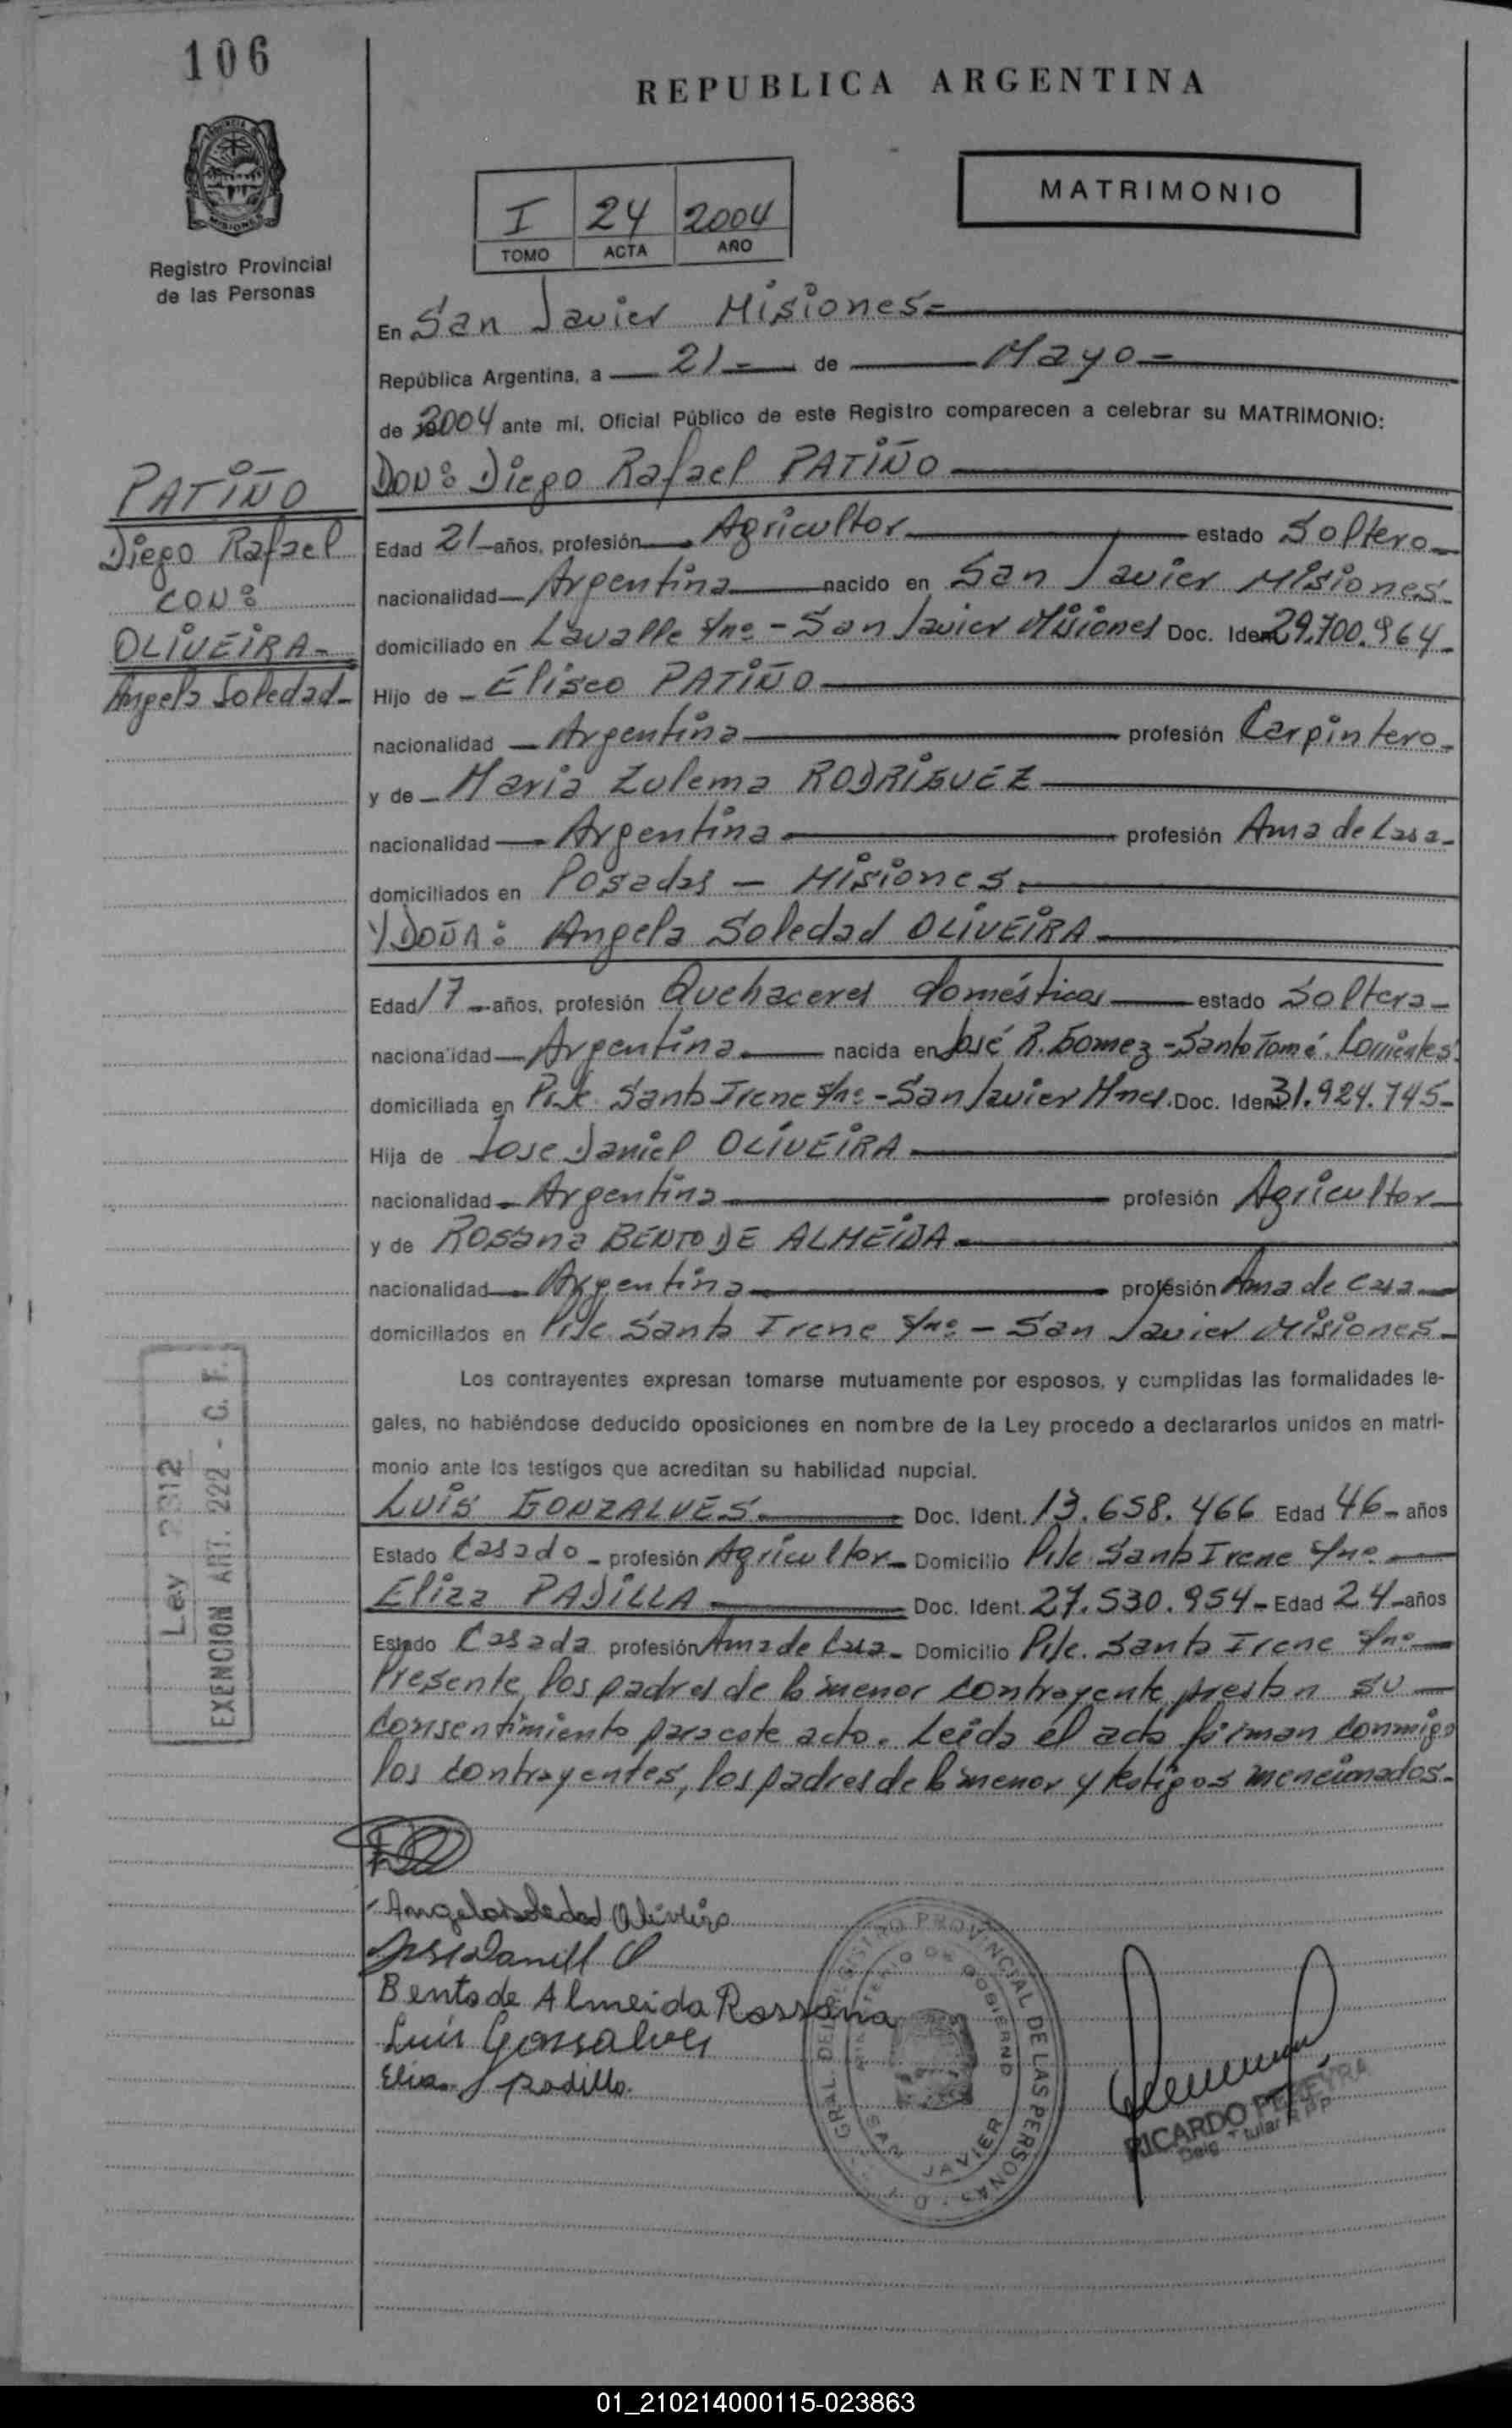 106
REPUBLICA ARGENTINA
PROVINCIA DE
MISIONES
Registro Provincial
de las Personas
I 24 2004
TOMO ACTA AÑO
MATRIMONIO
En San Javier Misiones=
República Argentina, a 21 - de Mayo -
de 2004 ante mí, Oficial Público de este Registro comparecen a celebrar su MATRIMONIO:
DON: Diego Rafael PATIÑO
PATIÑO
Diego Rafael
CON:
OLIVEIRA-
Angela Soledad-
Edad 21 años, profesión Agricultor estado Soltero
nacionalidad Argentina nacido en San Javier Misiones.
domiciliado en Lavalle s/nº - San Javier Misiones Doc. Ident. 29.700.964
Hijo de Eliseo PATIÑO
nacionalidad Argentina profesión Carpintero
y de Maria Zulema RODRIGUEZ
nacionalidad Argentina profesión Ama de Casa
domiciliados en Posadas - Misiones.
Y DOÑA: Angela Soledad OLIVEIRA
Edad 17 años, profesión Quehaceres domésticos estado Soltera
nacionalidad Argentina nacida en José R. Gomez - Santo Tomé. Corrientes.
domiciliada en Pje. Santa Irene s/nº - San Javier Mnes. Doc. Ident. 31.924.745
Hija de Jose Daniel OLIVEIRA
nacionalidad Argentina profesión Agricultor
y de Rosana BENTO DE ALMEIDA
nacionalidad Argentina profesión Ama de Casa
domiciliados en Pje. Santa Irene s/nº - San Javier Misiones
Los contrayentes expresan tomarse mutuamente por esposos, y cumplidas las formalidades le-
gales, no habiéndose deducido oposiciones en nombre de la Ley procedo a declararlos unidos en matri-
monio ante los testigos que acreditan su habilidad nupcial.
Luis GONZALVES Doc. Ident. 13.658.466 Edad 46 años
Estado Casado profesión Agricultor Domicilio Pje. Santa Irene s/nº
Eliza PADILLA Doc. Ident. 27.530.954 Edad 24 años
Estado Casada profesión Ama de Casa Domicilio Pje. Santa Irene s/nº
Presente, los padres de la menor contrayente, prestan su
consentimiento para este acto. Leida el acta firman conmigo
los contrayentes, los padres de la menor y testigos mencionados.
Ley 2312
EXENCION ART. 222 - C. F.
Angela Soledad Oliveira
Jose Daniel O
Bento de Almeida Rossana
Luis Gonsalves
Elisa Padilla.
GRAL. DEL REGISTRO PROVINCIAL DE LAS PERSONAS
MINISTERIO DE GOBIERNO
SAN JAVIER
RICARDO PEREYRA
Deleg. Titular R P P
01_210214000115-023863